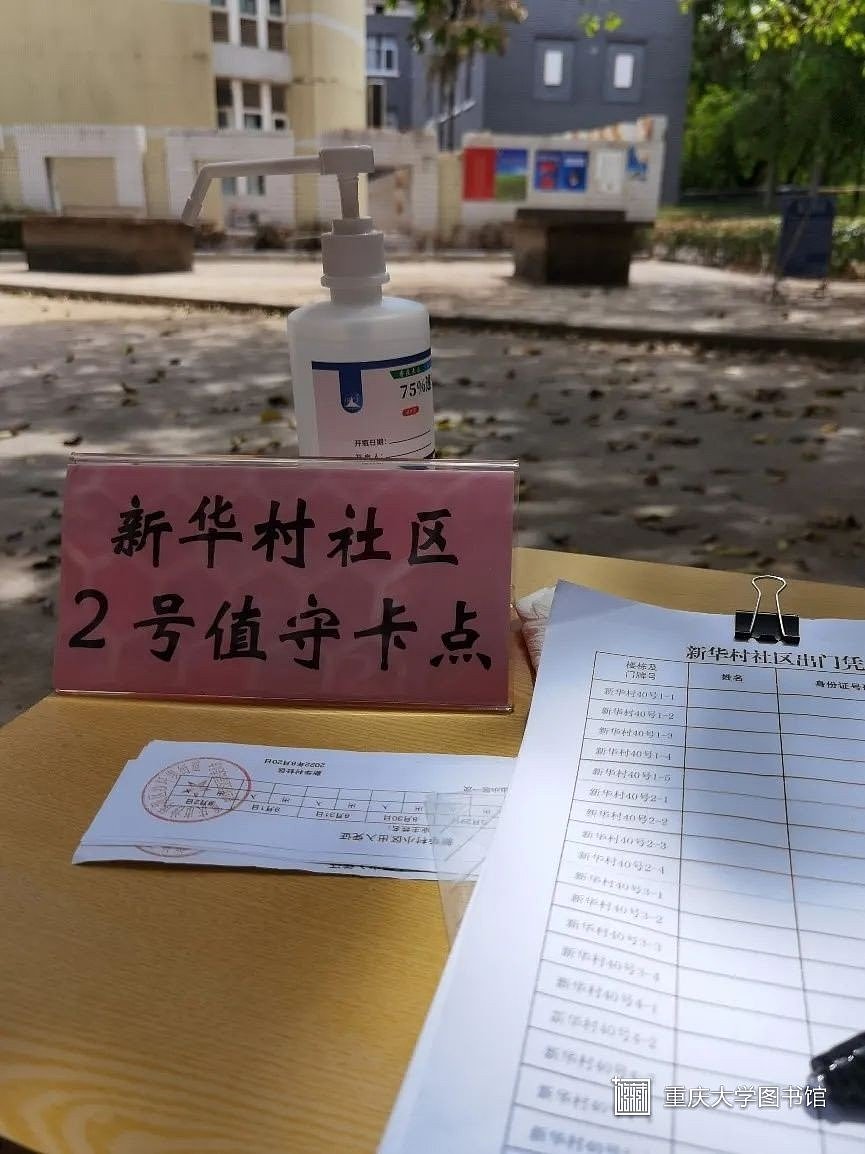 75%
开瓶日期：
新华村社区
2号值守卡点
新华村社区出门凭
楼栋及门牌号 姓名 身份证号
新华村40号1-1
新华村40号1-2
新华村40号1-3
新华村40号1-4
新华村40号1-5
新华村40号2-1
新华村40号2-2
新华村40号2-3
新华村40号2-4
新华村40号3-1
新华村40号3-2
新华村40号3-3
新华村40号3-4
新华村40号4-1
新华村40号4-2
新华村40号
新华村小区出入凭证
业主姓名：
8月30日 8月31日 9月1日 9月2日
出 入 出 入 出
新华村社区
重庆大学图书馆